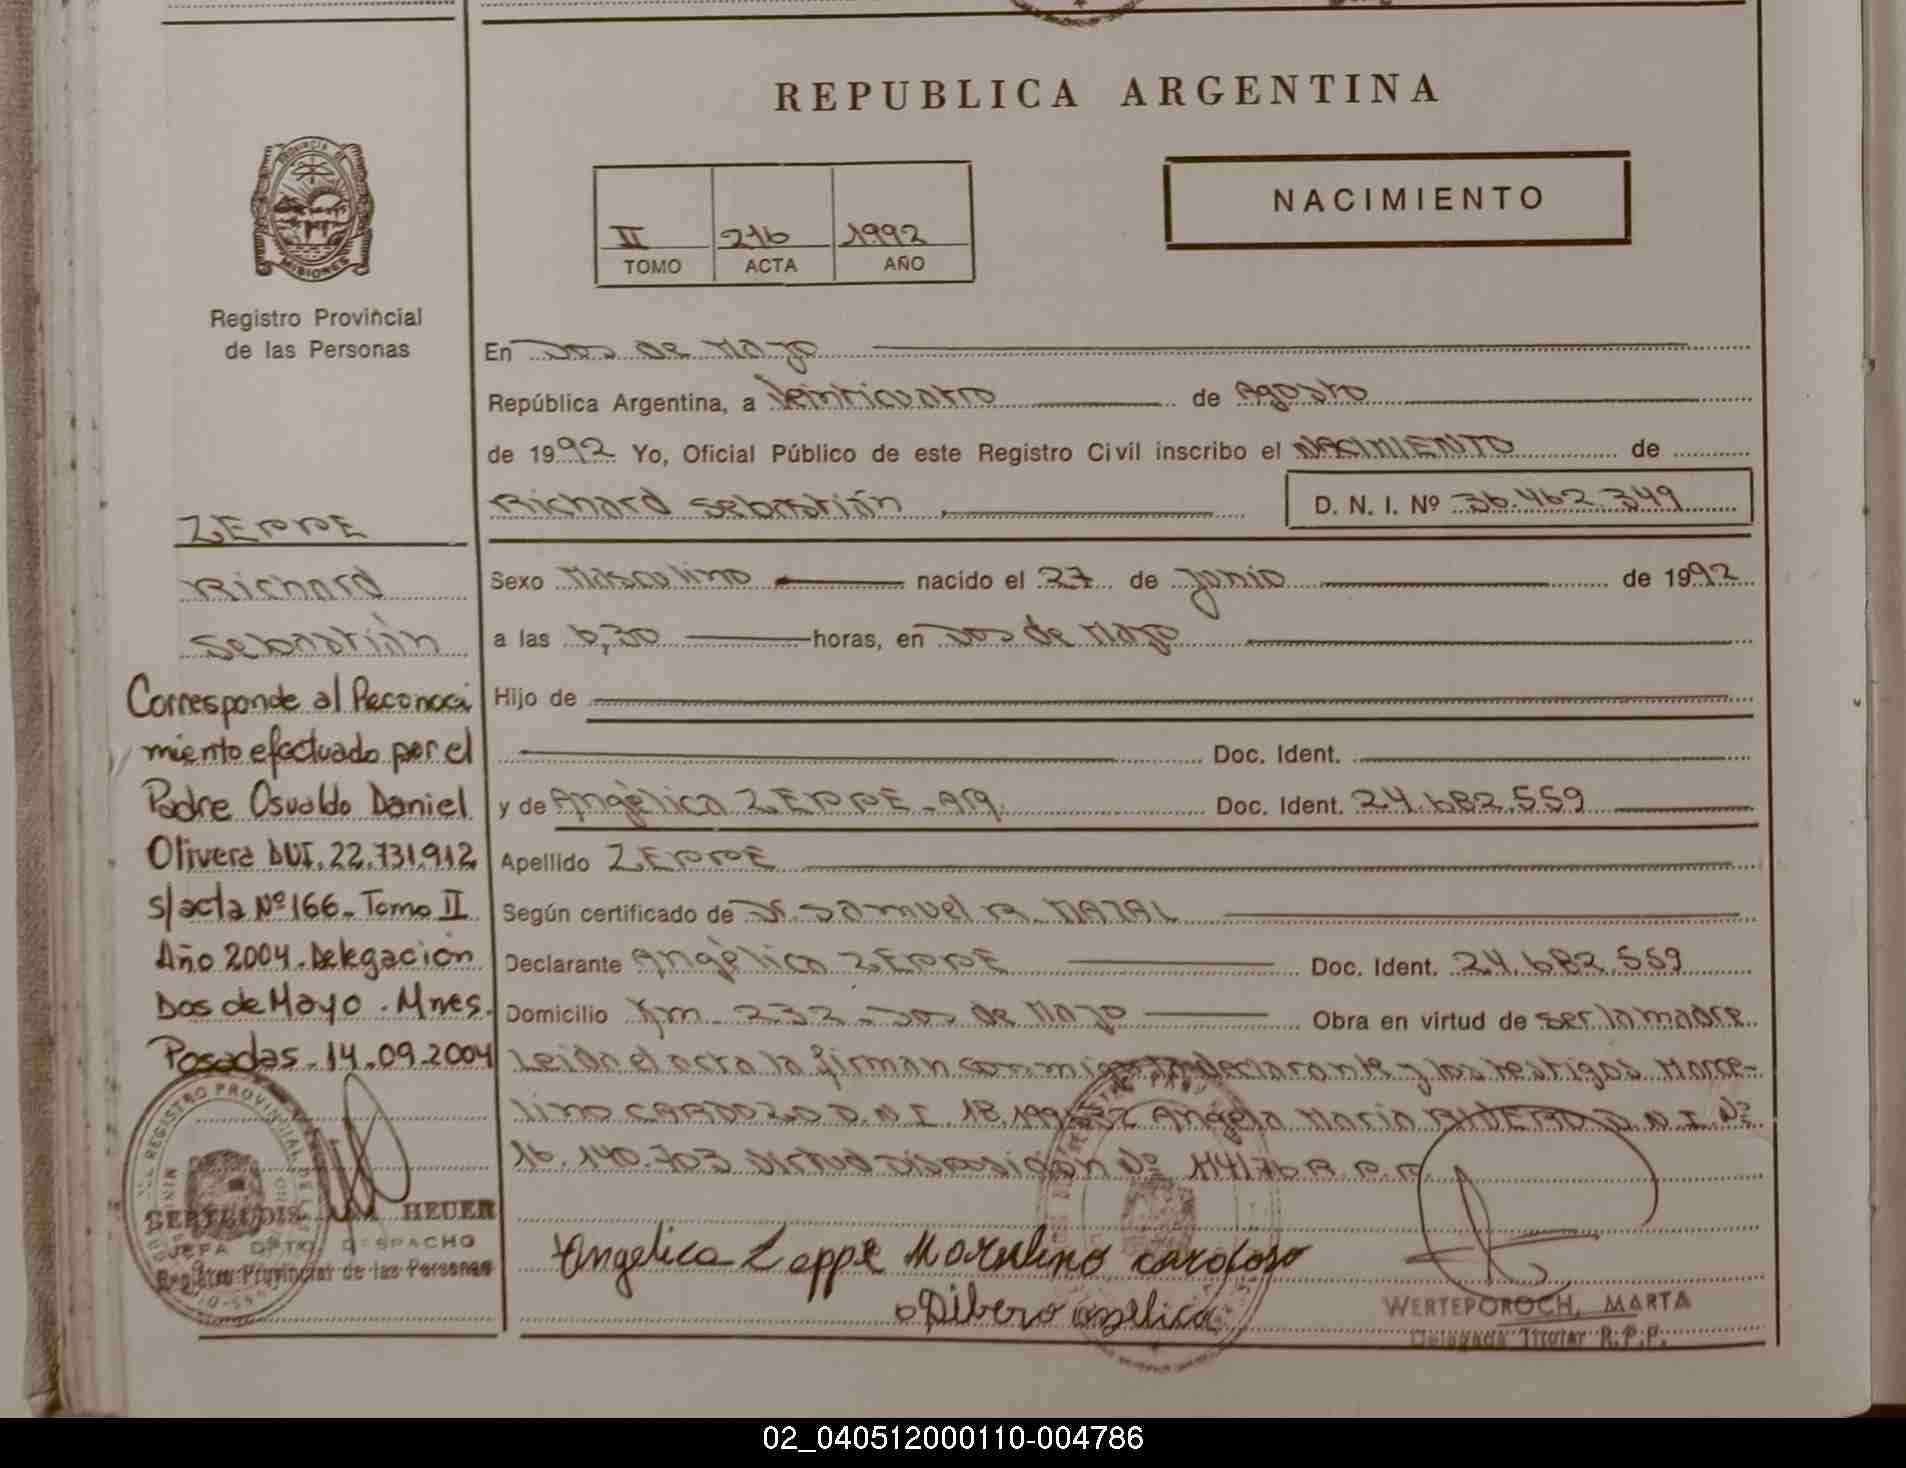 REPUBLICA ARGENTINA
PROVINCIA DE
MISIONES
Registro Provincial
de las Personas
II 216 1992
TOMO ACTA AÑO
NACIMIENTO
En Dos de Mayo
República Argentina, a Veinticuatro de Agosto
de 1992 Yo, Oficial Público de este Registro Civil inscribo el NACIMIENTO de
Richard Sebastián D. N. I. Nº 36.462.349
Sexo Masculino nacido el 27 de Junio de 1992
a las 6,30 horas, en Dos de Mayo
Hijo de
Doc. Ident.
y de Angélica ZEPPE - Arg. Doc. Ident. 24.682.559
Apellido ZEPPE
Según certificado de Dr. Samuel R.
Declarante Angélica ZEPPE Doc. Ident. 24.682.559
Domicilio Km. 232 - Dos de Mayo Obra en virtud de ser la madre
Leida el acta la firman conmigo la declarante y los testigos Marce-
lino CARDOZO D.N.I. 18.199. Angela Maria D.N.I. Nº
16.140.703 Virtud Disposición Nº R.P.P.
Angelica Zeppe Marcelino cardoso
Ribero angelica
WERTEPOROCH, MARTA
Delegada Titular R.P.P.
ZEPPE
Richard
Sebastián
Corresponde al Reconoci
miento efectuado por el
Padre Osvaldo Daniel
Olivera DNI. 22.731.912
s/acta Nº 166 - Tomo II
Año 2004 - Delegación
Dos de Mayo - Mnes.
Posadas - 14-09-2004
REGISTRO PROVINCIAL DE
GERTRUDIS HEUER
JEFA DPTO. DESPACHO
Registro Provincial de las Personas
02_040512000110-004786